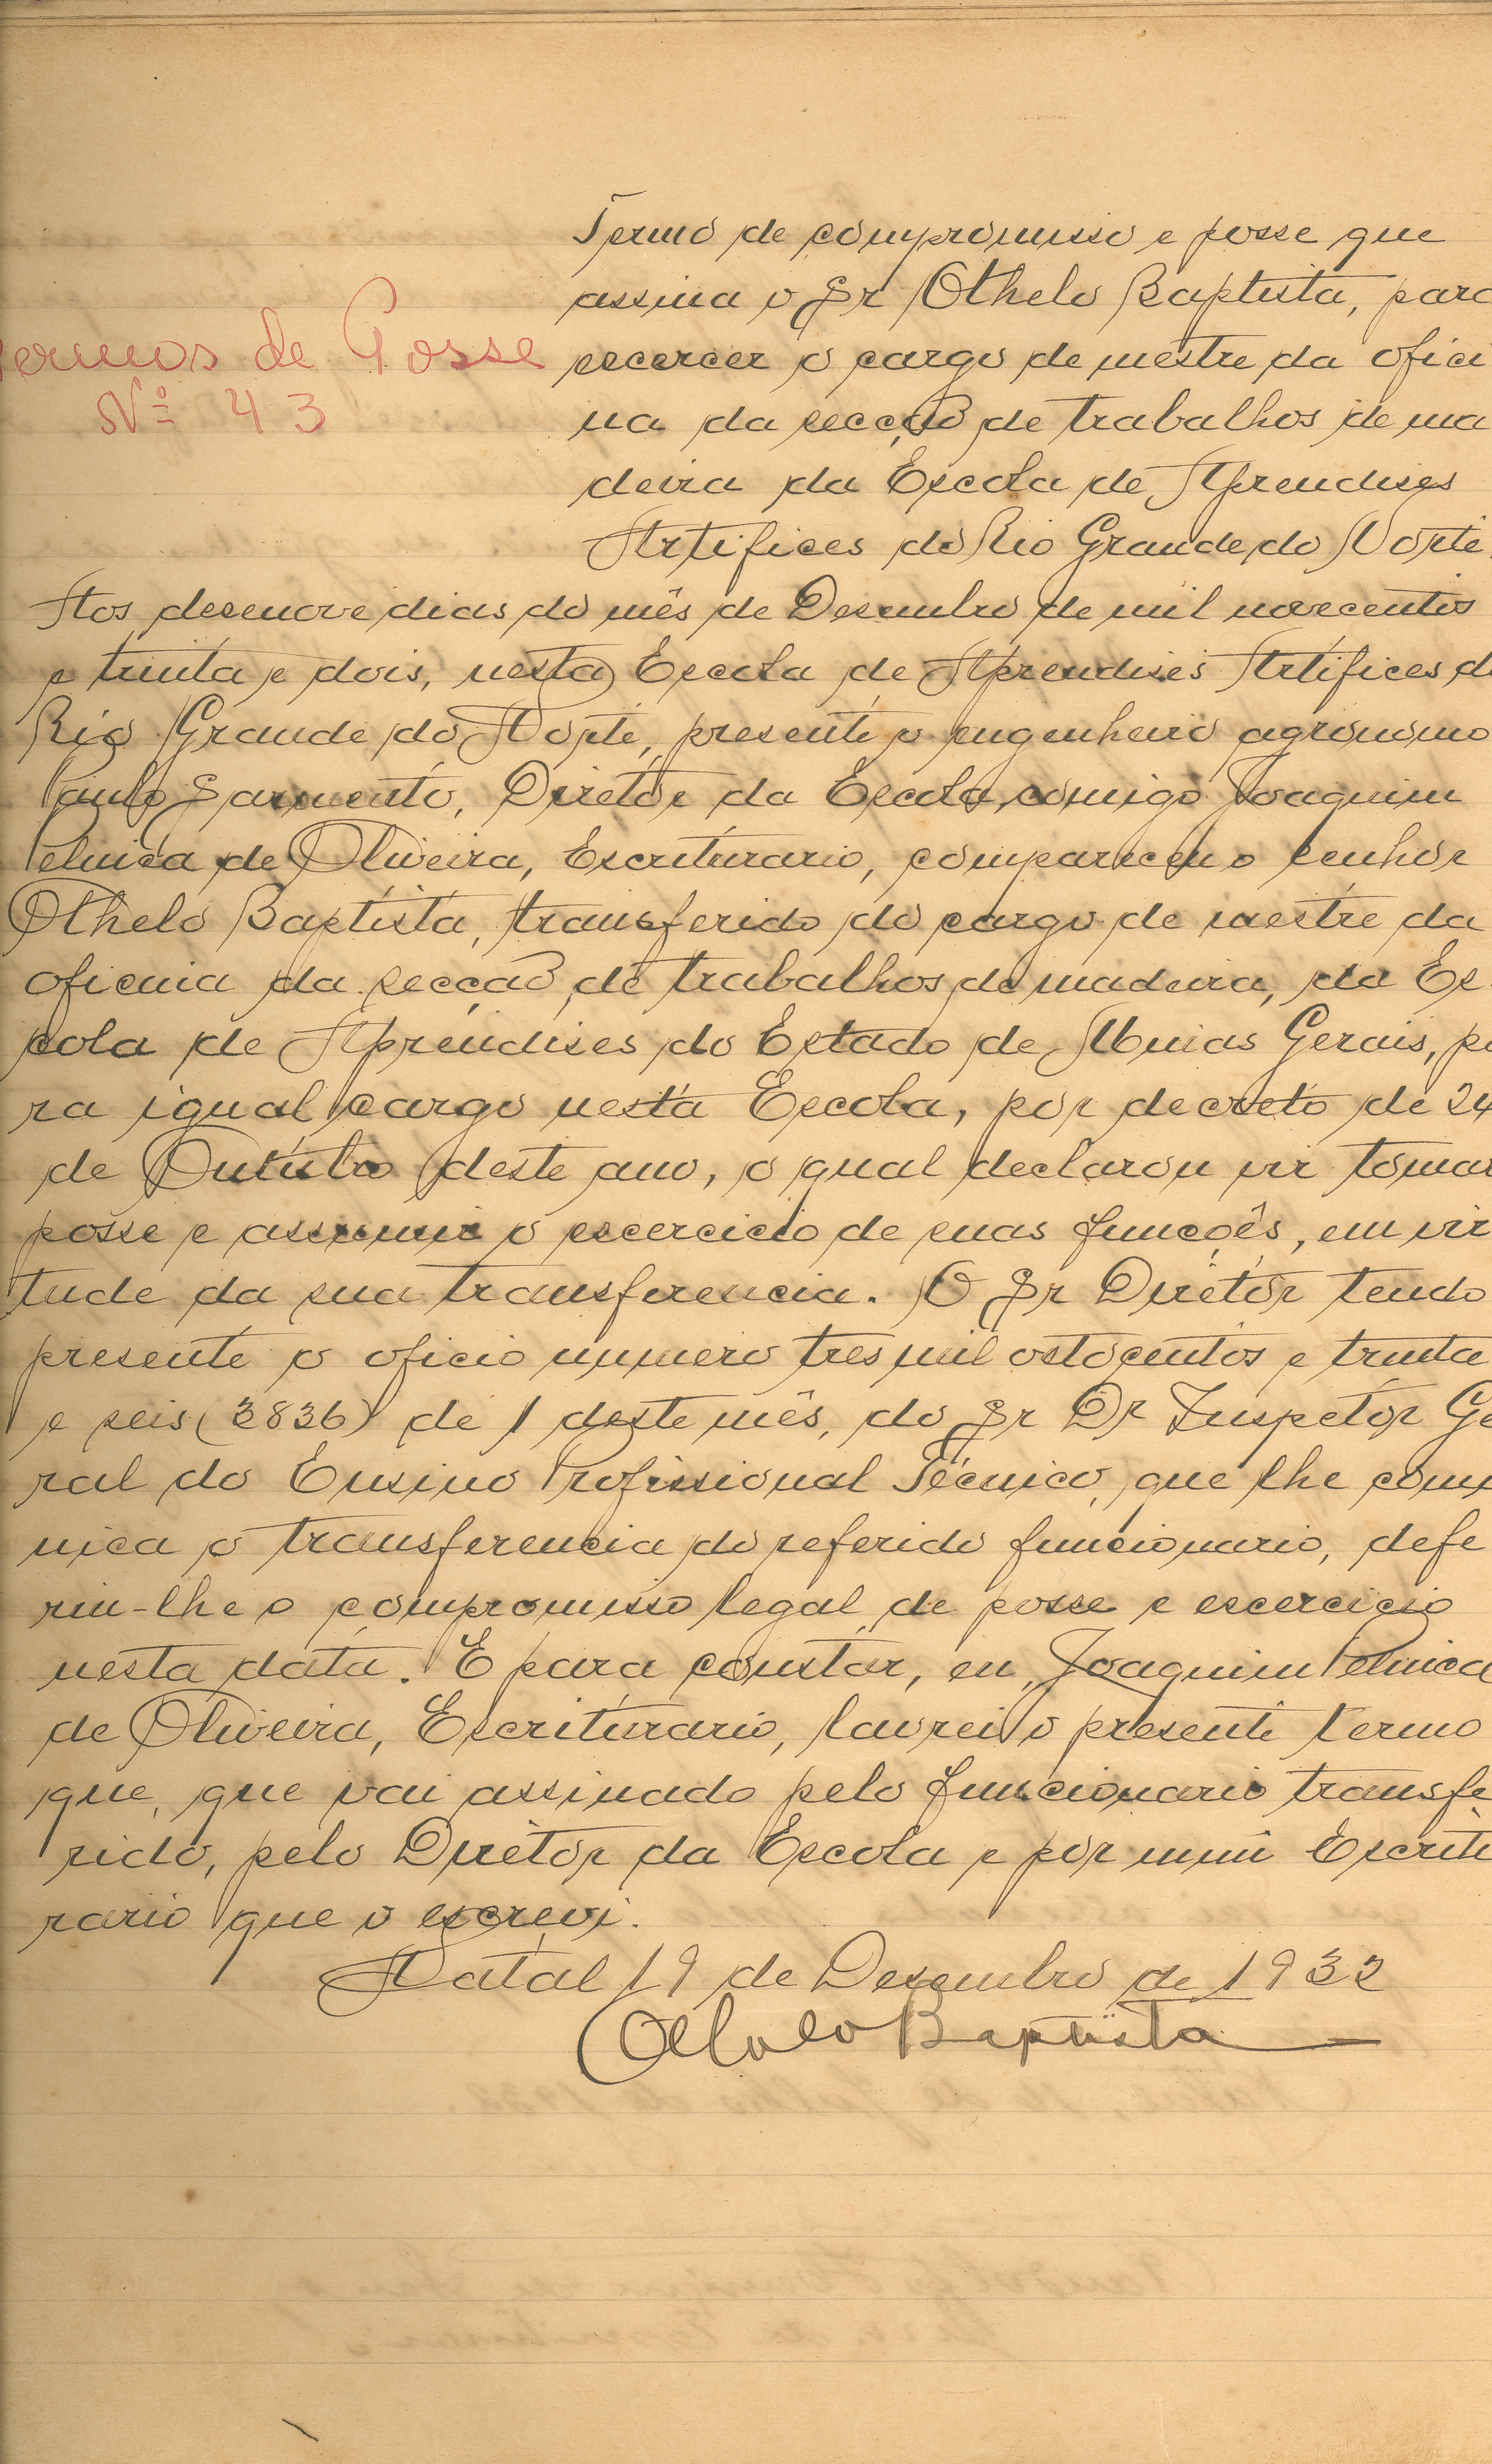 Termo de compromisso e posse que
assina o Sr Othelo Baptista, para
escercer o cargo de mestre da ofici
Termos de Posse
Nº 43
na da secção de trabalhos de ma
deira da Escola de Aprendises
Artifices do Rio Grande do Norte.
Aos desenove dias do mês de Desembro de mil novecentos
e trinta e dois, nesta Escola de Aprendises Artifices do
Rio Grande do Norte, presente o engenheiro agronomo
Paulo Sarmento, Diretor da Escola, comigo Joaquim
de Oliveira, Escriturario, compareceu o senhor
Othelo Baptista, transferido do cargo de mestre da
oficina da secção de trabalhos de madeira, da Es
cola de Aprendises do Estado de Minas Gerais, pa
ra igual cargo nesta Escola, por decreto de 24
de Outubro deste ano, o qual declarou vir tomar
posse e assumir o escercicio de suas funcções, em vir
tude da sua transferencia. O Sr Diretor tendo
presente o oficio numero tres mil oitocentos e trinta
e seis (3836) de 1 deste mês, do Sr Dr Inspetor Ge
ral do Ensino Profissional Técnico, que lhe comu
nica o transferencia do referido funcionario, defe
riu-lhe o compromisso legal de posse e escercicio
nesta data. E para constar, eu, Joaquim
de Oliveira, Escriturario, lavrei o presente termo
que, que vai assinado pelo funcionario transfe
rido, pelo Diretor da Escola e por mim Escritu
rario que o escrevi.
Natal 19 de Desembro de 1932
Othelo Baptista